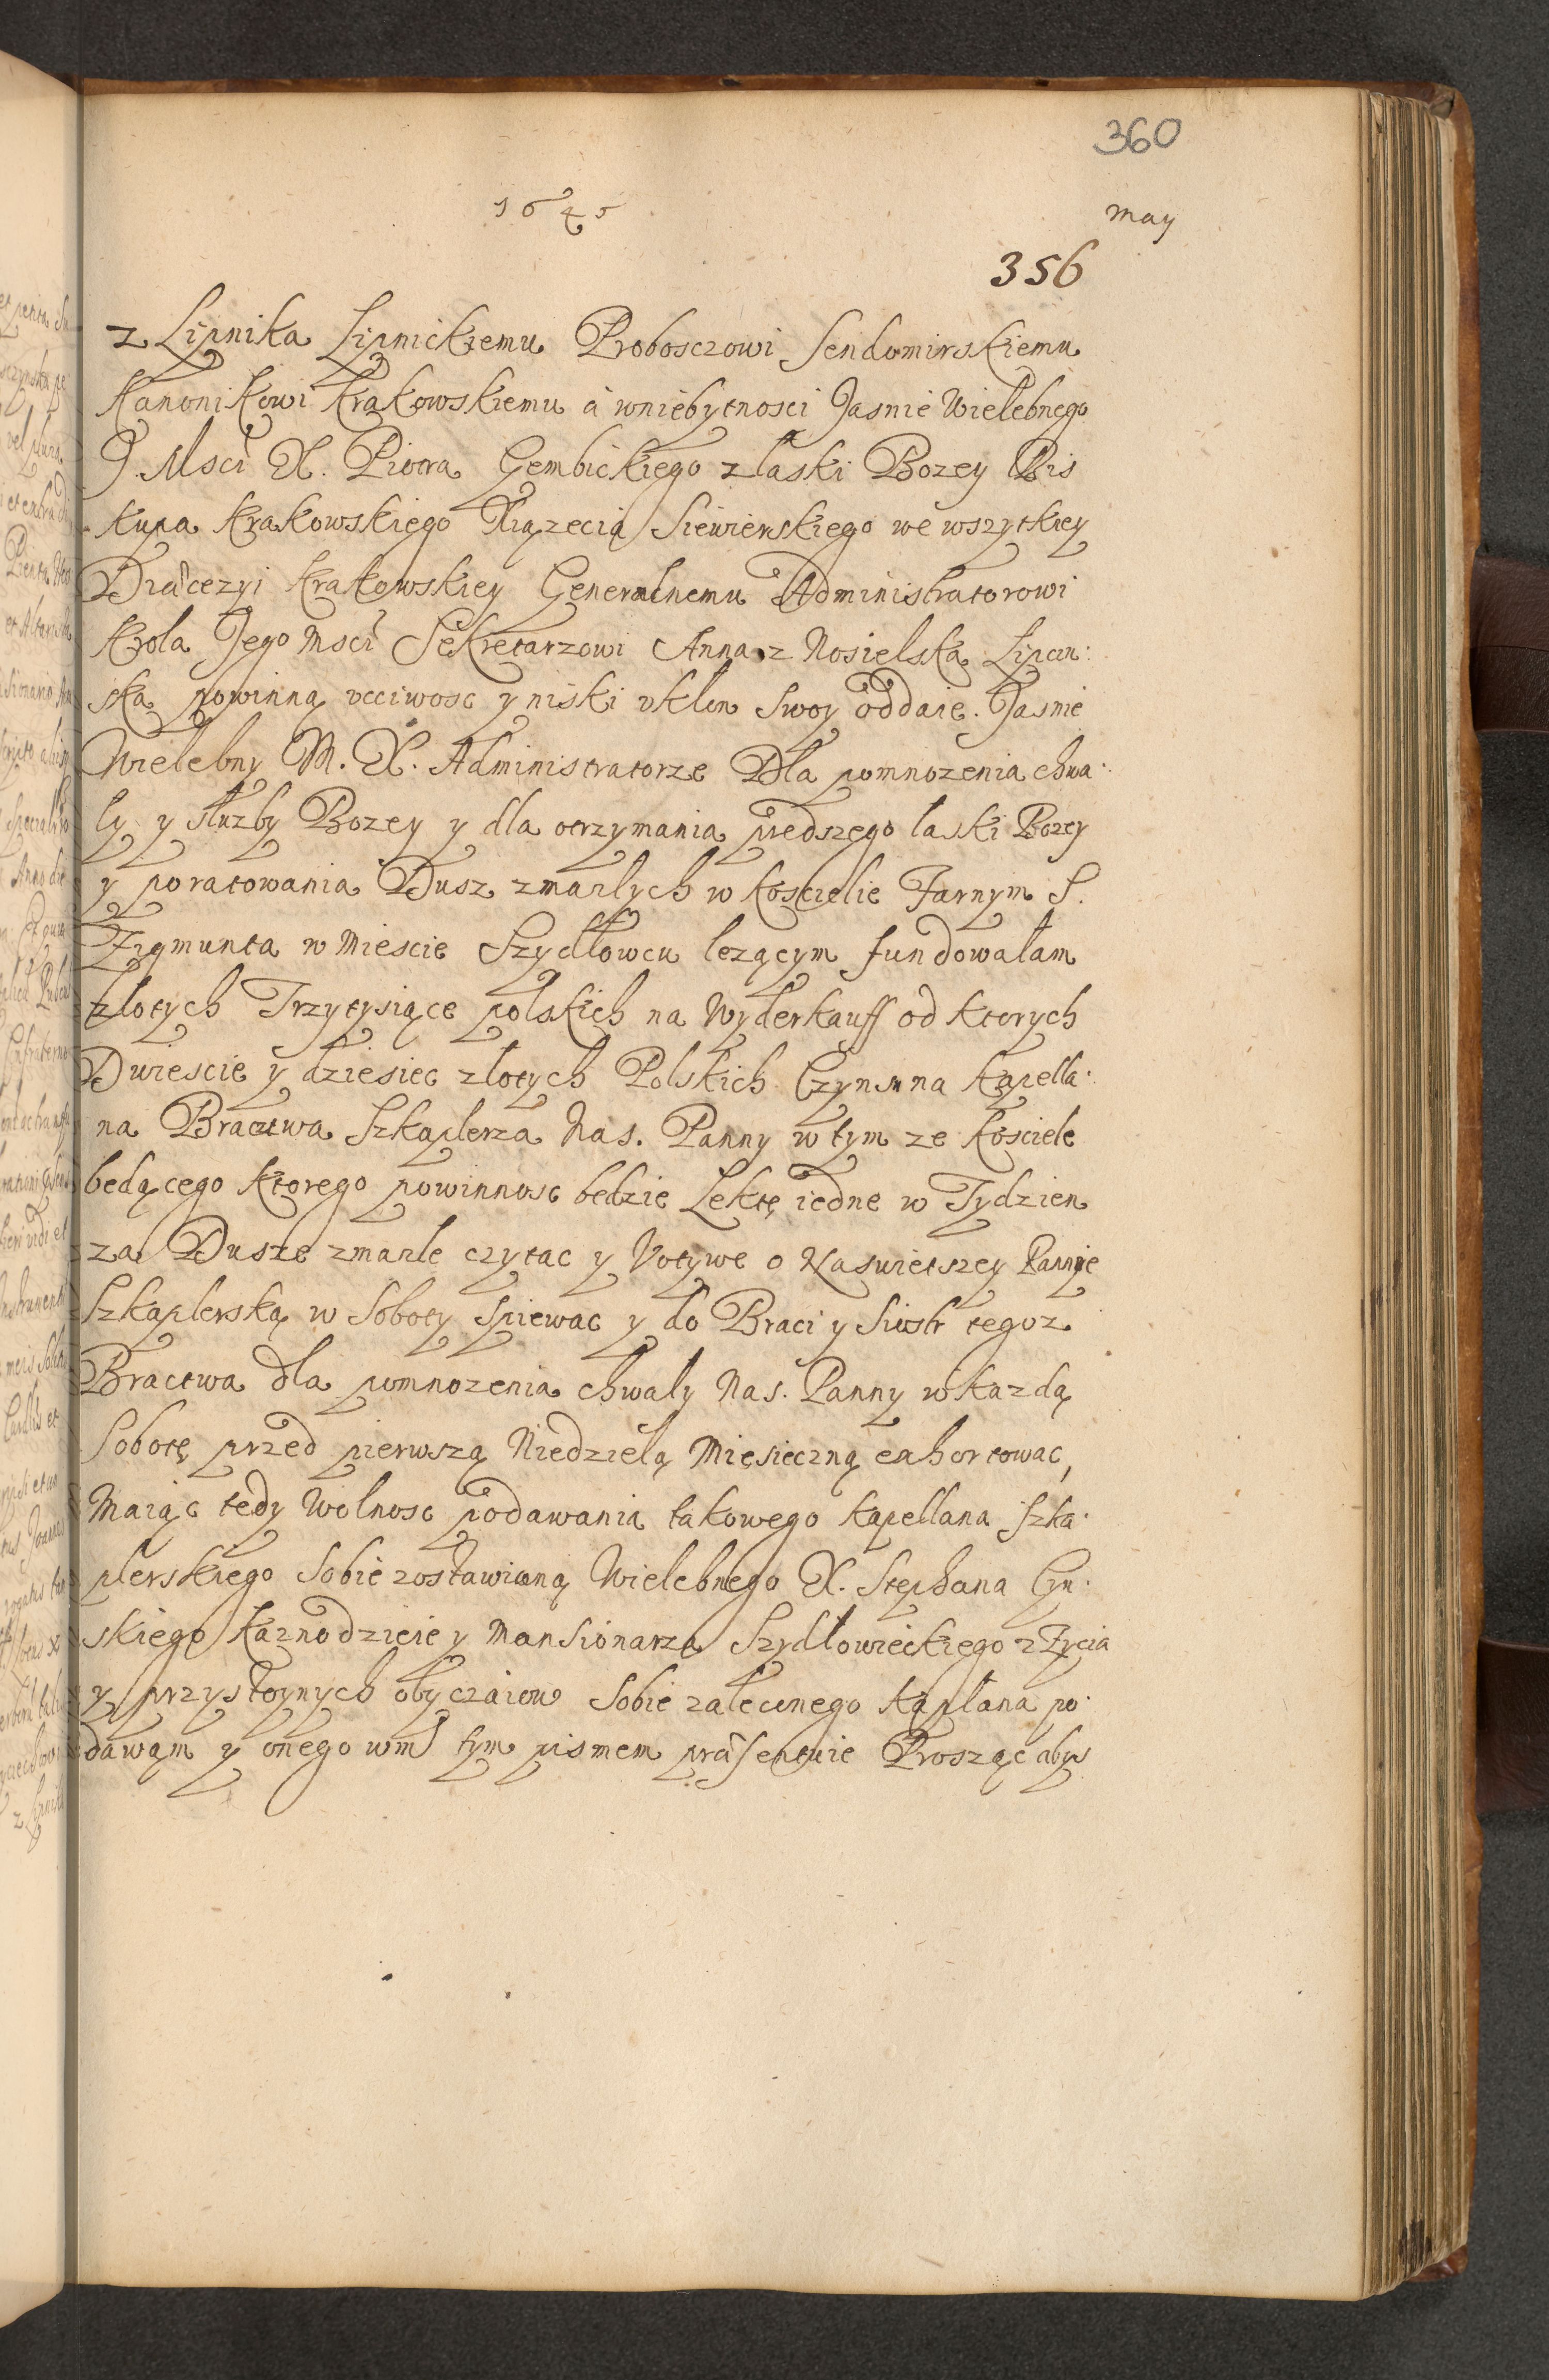 360
1645
may
356
z Lipnika Lipnickiemu Proboszczowi Sendomirskiemu
Kanonikowi Krakowskiemu à wniebytnosci Jasnie Wielebnego
J. Msci X. Piotra Gembickiego z laski Bozey Bis
kupa Krakowskiego Xiązecia Siewierskiego we wszytkiey
Diaecezyi Krakowskiey Generalnemu Administratorowi
Krola Jego Msci Sekretarzowi Anna z Nosielska Lipin:
ska powinną vcciwosc y niski vklon swoy oddaie. Jasnie
Wielebny M. X. Administratorze Dla pomnozenia chwa:
ly y służby Bozey y dla otrzymania predszego laski Bozey
y poratowania Dusz zmarlych w Koscielie Farnym S.
Zygmunta w Miescie Szydłowcu lezącym fundowałam
zlotych Trzytysiące polskich na Wyderkauff od ktorych
Dwiescie y dziesiec złotych Polskich Czynsu na Kapella:
na Bractwa Szkaplerza Nas. Panny w tym ze Kosciele
bedącego ktorego powinnosc bedzie Lektę iedne w Tydzien
za Dusze zmarle czytac y Votywe o Naswietszey Pannie
Szkaplerską w Soboty spiewac y do Braci y Siostr tegoz
Bractwa dla pomnozenia chwaly Nas. Panny w kazdą
Sobotę przed pierwszą Niedzielą Miesieczną exhortowac,
Maiąc tedy Wolnosc podawania takowego Kapellana Szka:
plerskiego Sobie zostawioną Wielebnego X. Stephana
skiego Kaznodzieie y Mansionarza Szydłowieckiego z Zycia
y przystoynych obyczaiow Sobie zaleconego Kapłana po:
dawam y onego wm tym pismem praesentuie Prosząc abys